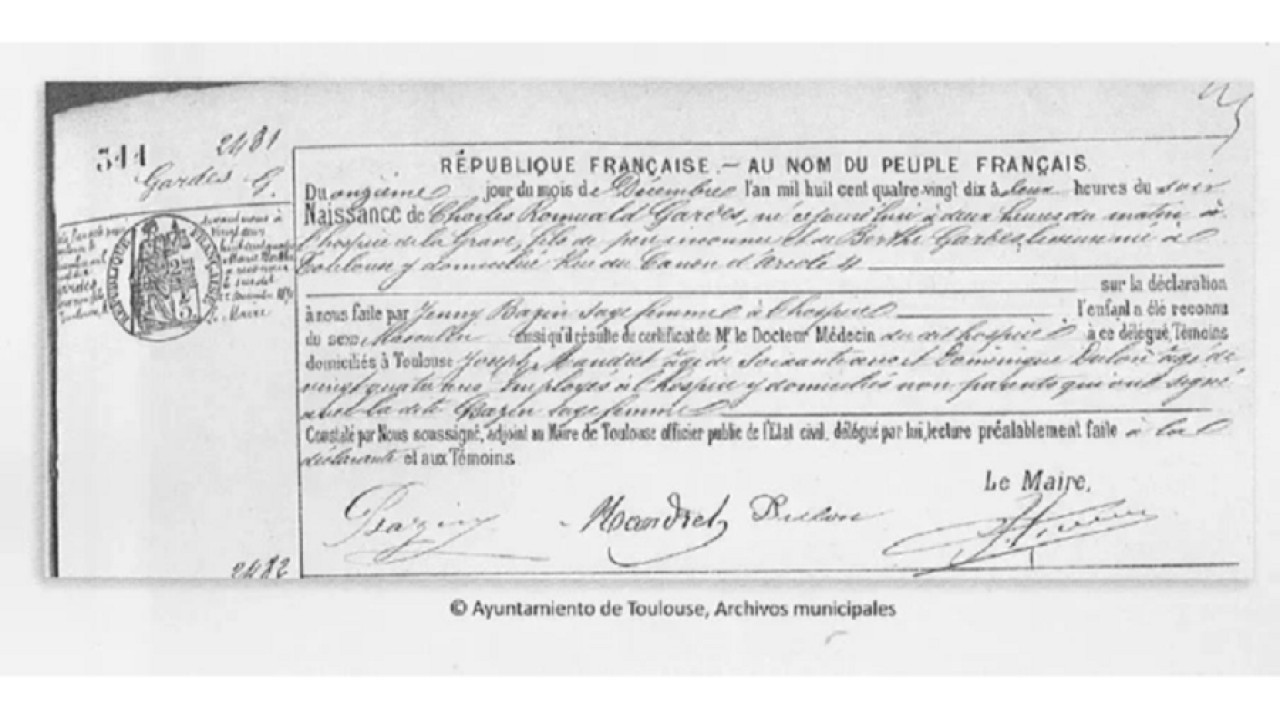 544
2481
Gardes G.
RÉPUBLIQUE FRANÇAISE.— AU NOM DU PEUPLE FRANÇAIS.
Du onzième jour du mois de Décembre l'an mil huit cent quatre-vingt dix à deux heures du soir
Naissance de Charles Romuald Gardes, né ce jourd'hui à deux heures du matin à
l'hospice de la Grave, fils de père inconnu et de Berthe Gardes née à
Toulouse y domiciliée Rue du Canon d'Arcole 4
sur la déclaration
à nous faite par Jenny Bazin sage femme à l'hospice l'enfant a été reconnu
du sexe Masculin ainsi qu'il résulte du certificat de Mr le Docteur Médecin du dit hospice à ce délégué, Témoins
domiciliés à Toulouse Joseph Mandret âgé de Soixante ans et Dominique Dulon âgé de
vingt quatre ans Employés à l'hospice y domiciliés non parents qui ont signé
avec la dite Bazin sage femme
Constaté par Nous soussigné, adjoint au Maire de Toulouse officier public de l'Etat civil, délégué par lui, lecture préalablement faite à la
déclarante et aux Témoins.
Le Maire,
Bazin Mandret Dulon
RÉPUBLIQUE FRANÇAISE
2482
© Ayuntamiento de Toulouse, Archivos municipales